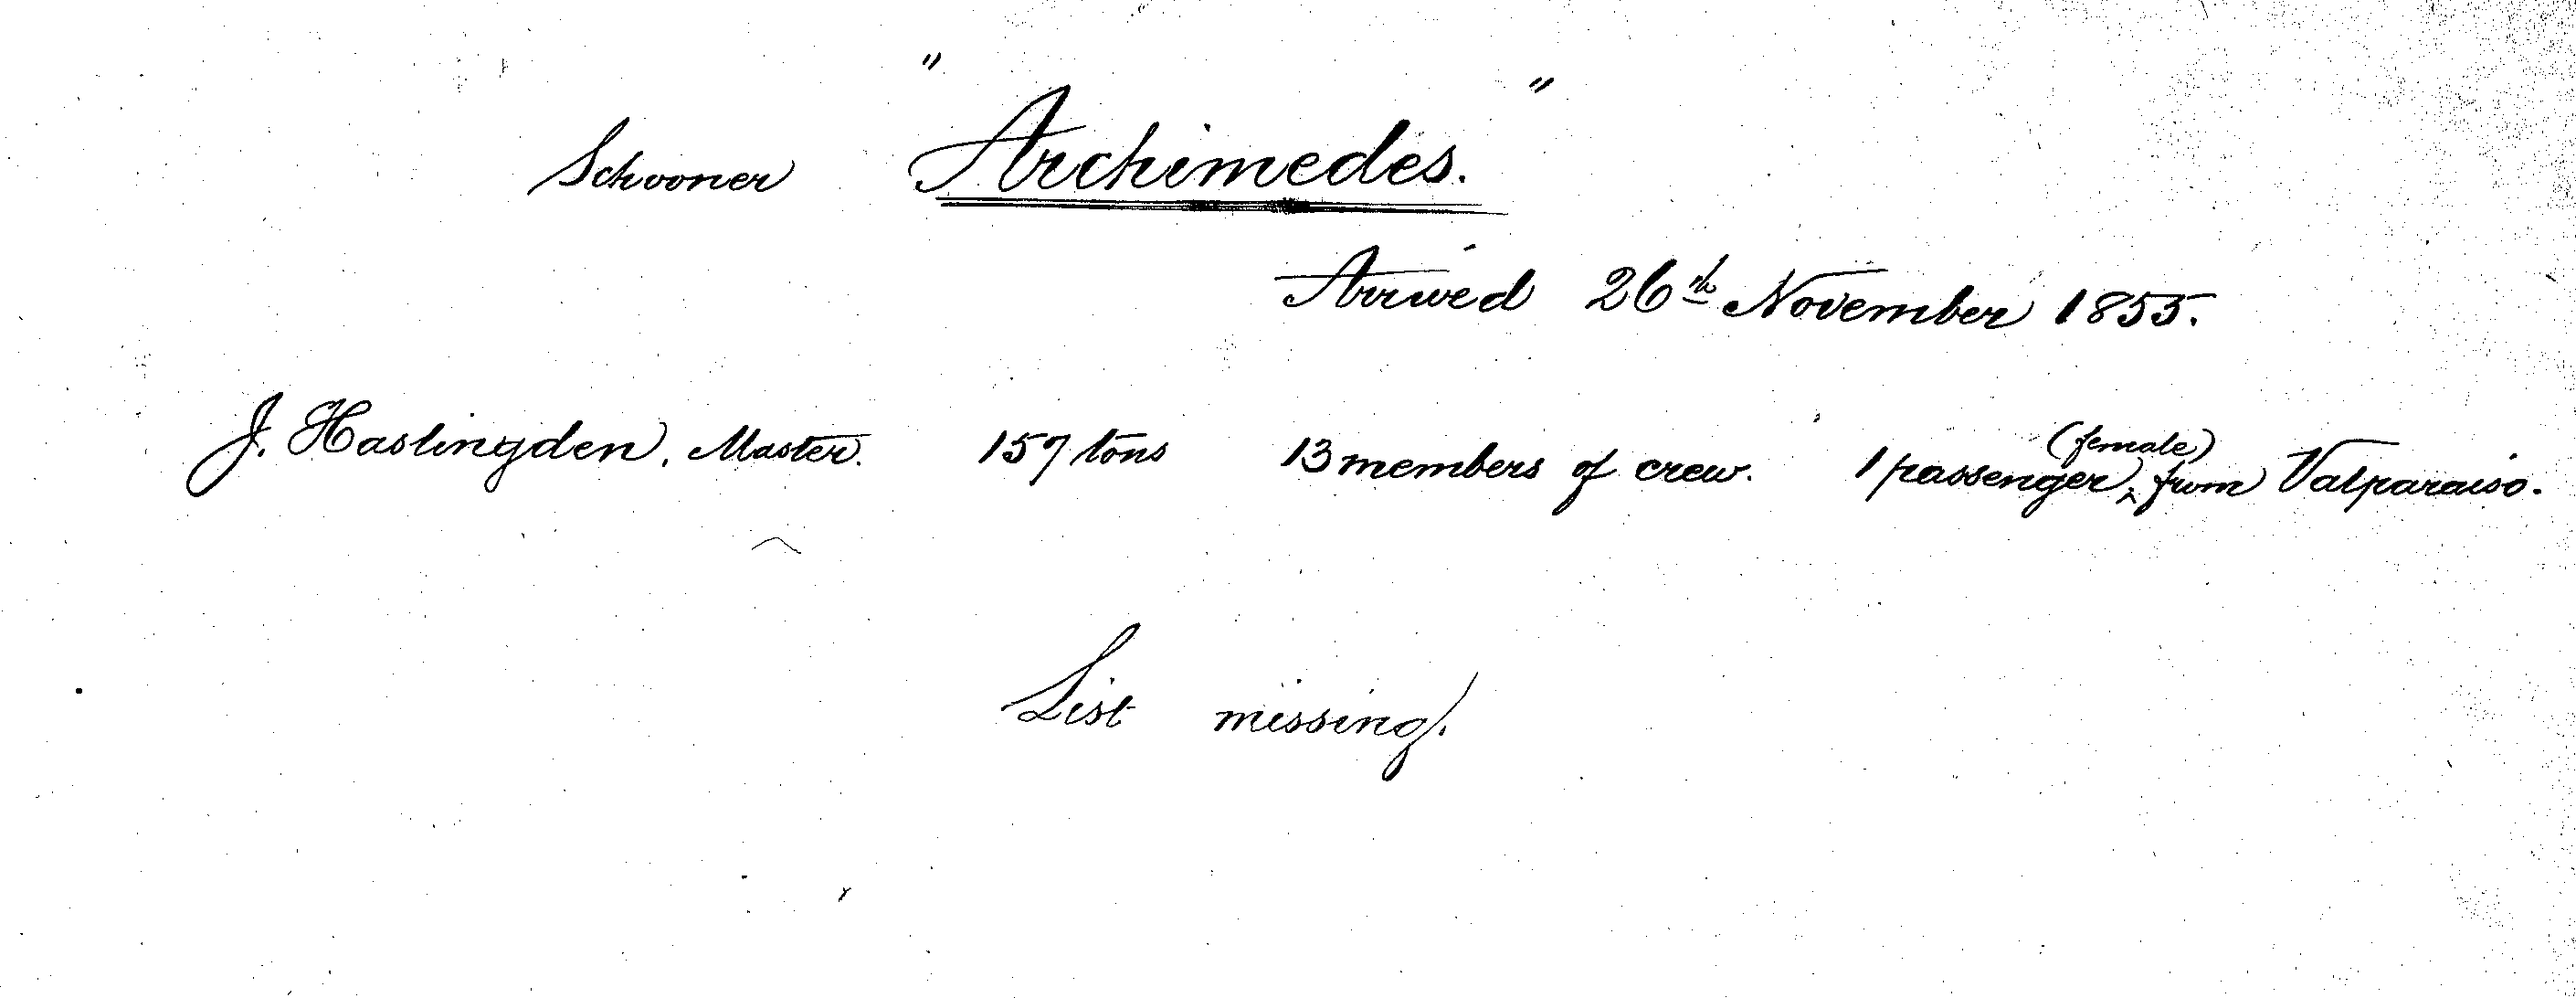 Schooner "Archimedes."
Arrived 26th November 1855.
J. Haslingden, Master. 157 tons 13 members of crew. 1 passenger (female) from Valparaiso.
List missing.